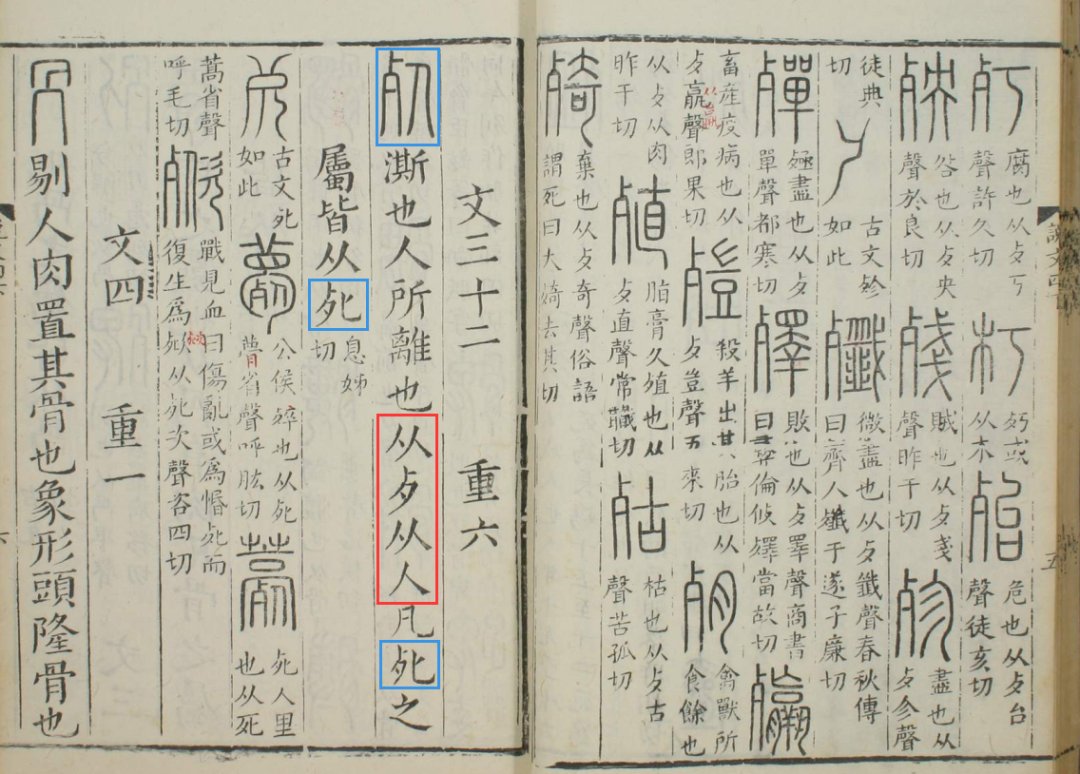 㱙腐也从歺丂聲許久切朽㱙或从木殆危也从歺台聲徒亥切
殃咎也从歺央聲於良切殘賊也从歺戔聲昨干切殄盡也从歺㐱聲
徒典切古文殄如此殲微盡也从歺韱聲春秋傳曰齊人殲于遂子廉切
殫殛盡也从歺單聲都寒切殬敗也从歺睪聲商書曰彝倫攸殬當故切
畜產疫病也从歺羸聲郎果切殪殺羊出其胎也从歺豈聲五來切禽獸所食餘也
从歺从肉昨干切殖脂膏久殖也从歺直聲常職切㱠枯也从歺古聲苦孤切
㱦棄也从歺奇聲俗語謂死曰大㱦去其切
文三十二 重六
死澌也人所離也从歺从人凡死之
屬皆从死息姊切
古文死如此薨公侯殌也从死瞢省聲呼肱切薧死人里也从死
蒿省聲呼毛切㱞戰見血曰傷亂或爲惛死而復生爲㱞从死次聲咨四切
文四 重一
冎剔人肉置其骨也象形頭隆骨也